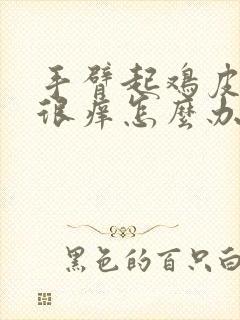 手臂起鸡皮
很痒怎麽办
黑色的百只白